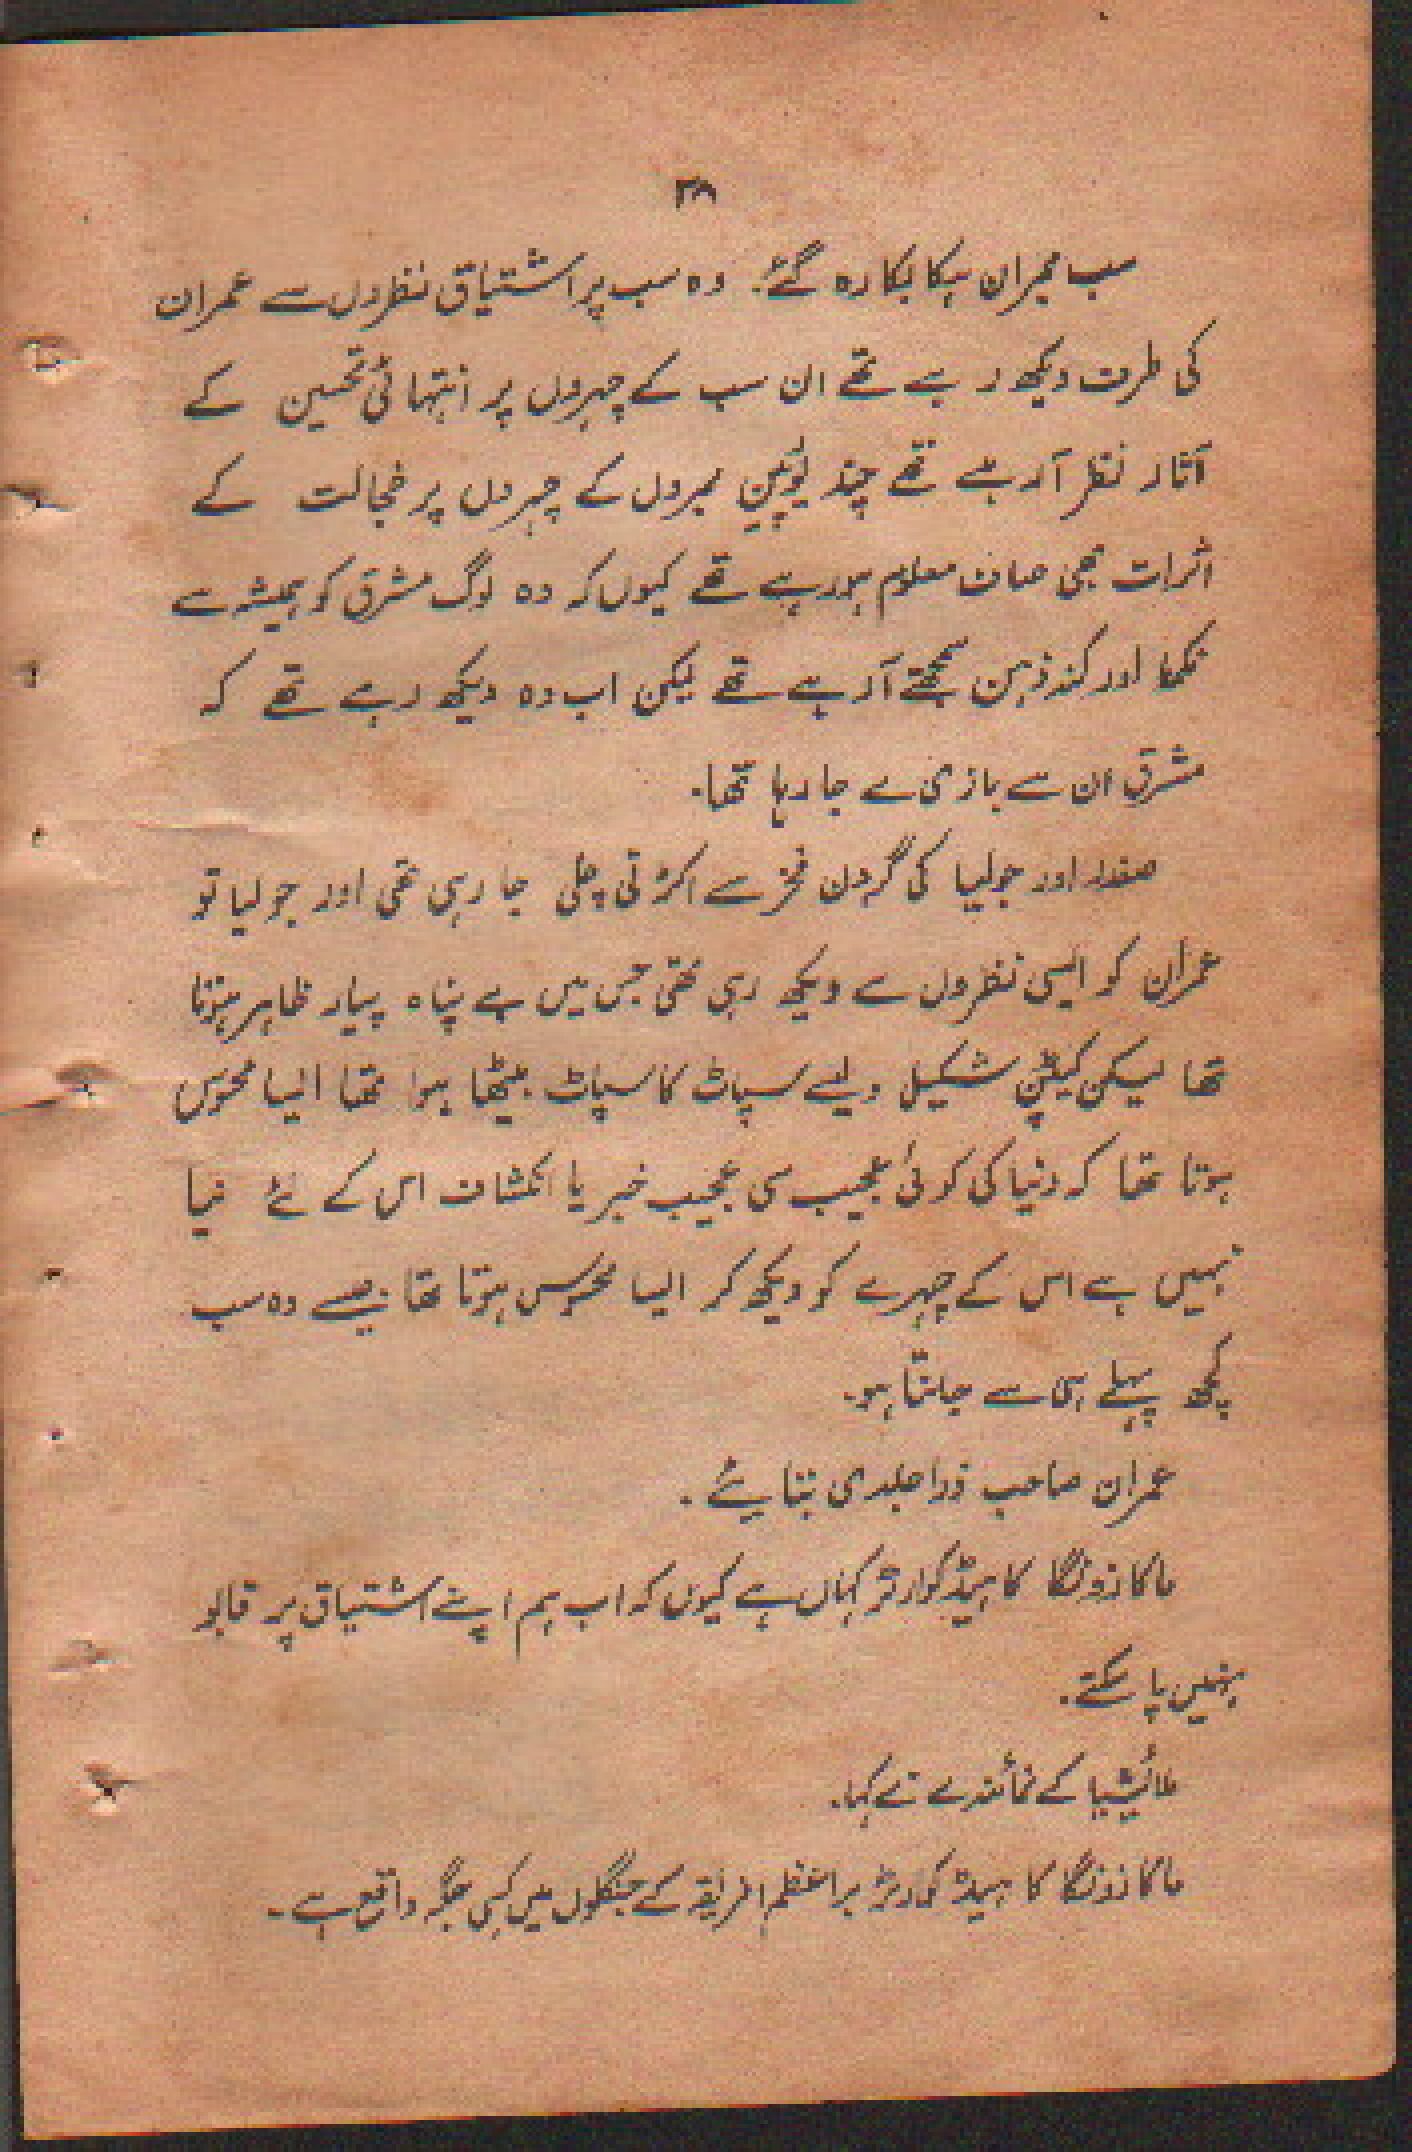 ۳۸
سب ممبران ہکا بکا رہ گئے۔ وہ سب پر اشتیاق نظروں سے عمران
کی طرف دیکھ رہے تھے ان سب کے چہروں پر انتہائی تحسین کے
آثار نظر آ رہے تھے چند یورپین ممبروں کے چہروں پر خجالت کے
اثرات بھی صاف معلوم ہو رہے تھے کیوں کہ وہ لوگ مشرق کو ہمیشہ سے
نکما اور کند ذہن سمجھتے آ رہے تھے لیکن اب وہ دیکھ رہے تھے کہ
مشرق ان سے بازی لے جا رہا تھا۔
صفدر اور جولیا کی گردن فخر سے اکڑتی چلی جا رہی تھی اور جولیا تو
عمران کو ایسی نظروں سے دیکھ رہی تھی جس میں بے پناہ پیار ظاہر ہوتا
تھا لیکن کیپٹن شکیل ویسے سپاٹ کا سپاٹ بیٹھا ہوا تھا ایسا محسوس
ہوتا تھا کہ دنیا کی کوئی عجیب سی عجیب خبر یا انکشاف اس کے لئے نیا
نہیں ہے اس کے چہرے کو دیکھ کر ایسا محسوس ہوتا تھا جیسے وہ سب
کچھ پہلے ہی سے جانتا ہو۔
عمران صاحب ذرا جلدی بتایئے۔
ماکازونگا کا ہیڈ کوارٹر کہاں ہے کیوں کہ اب ہم اپنے اشتیاق پر قابو
نہیں پا سکتے۔
ملائیشیا کے نمائندے نے کہا۔
ماکازونگا کا ہیڈ کوارٹر براعظم افریقہ کے جنگلوں میں کسی جگہ واقع ہے۔